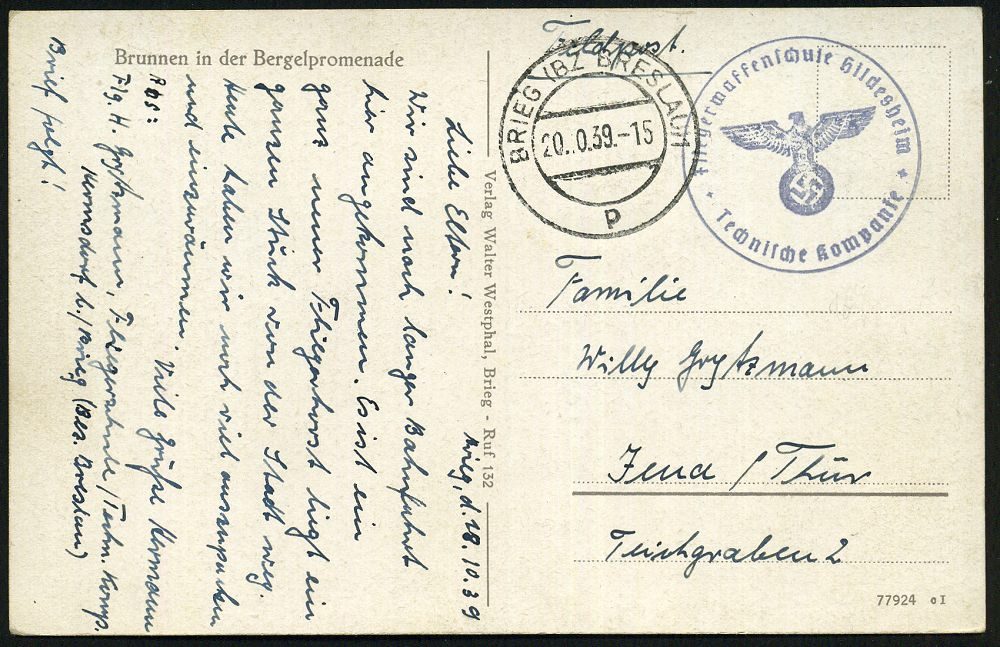 Brunnen in der Bergelpromenade
Brieg, d. 18.10.39
Liebe Eltern!
Wir sind nach langer Bahnfahrt
hier angekommen. Es ist ein
ganz neuer Fliegerhorst liegt ein
ganzes Stück von der Stadt weg.
Heute haben wir noch viel auszupacken
und einzuräumen. Viele Grüße Hermann
Abs:
Flg. H. Grytzmann, Fliegerschule/Techn. Komp.
Hermsdorf b./Brieg (Bez. Breslau)
Brief folgt!
Verlag Walter Westphal, Brieg - Ruf 132
Feldpost.
BRIEG (BZ BRESLAU)1
20..0.39.-15
p
Fliegerwaffenschule Hildesheim
* Technische Kompanie *
Familie
Willy Grytzmann
Jena / Thür
Teichgraben 2
77924 o I